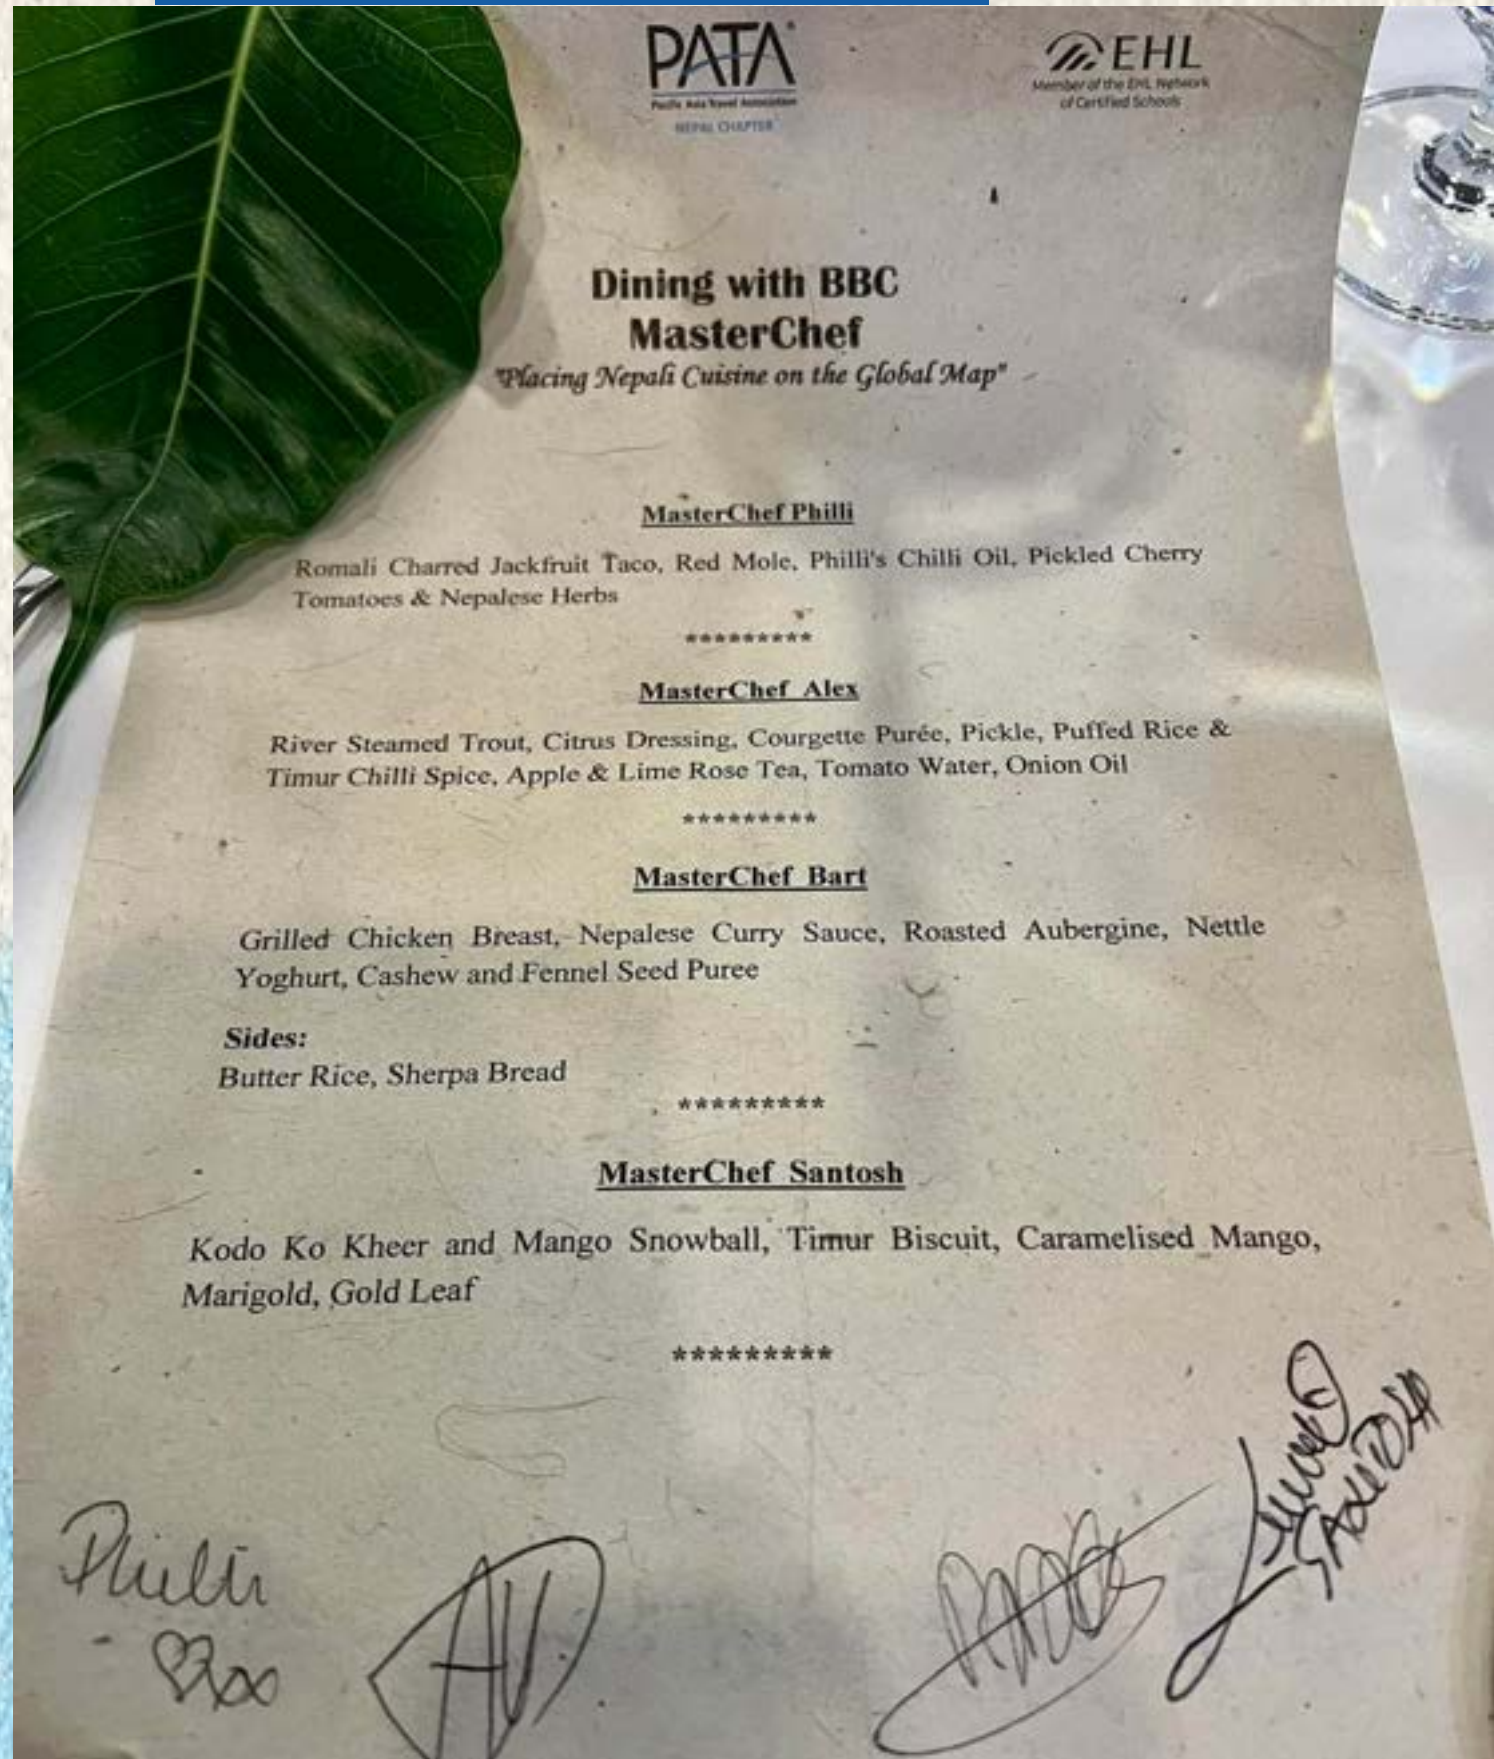 PATA
Pacific Asia Travel Association
NEPAL CHAPTER
EHL
Member of the EHL Network
of Certified Schools
Dining with BBC
MasterChef
"Placing Nepali Cuisine on the Global Map"
MasterChef Philli
Romali Charred Jackfruit Taco, Red Mole, Philli's Chilli Oil, Pickled Cherry
Tomatoes & Nepalese Herbs
*********
MasterChef Alex
River Steamed Trout, Citrus Dressing, Courgette Purée, Pickle, Puffed Rice &
Timur Chilli Spice, Apple & Lime Rose Tea, Tomato Water, Onion Oil
*********
MasterChef Bart
Grilled Chicken Breast, Nepalese Curry Sauce, Roasted Aubergine, Nettle
Yoghurt, Cashew and Fennel Seed Puree
Sides:
Butter Rice, Sherpa Bread
*********
MasterChef Santosh
Kodo Ko Kheer and Mango Snowball, Timur Biscuit, Caramelised Mango,
Marigold, Gold Leaf
*********
Philli
SANTOSH